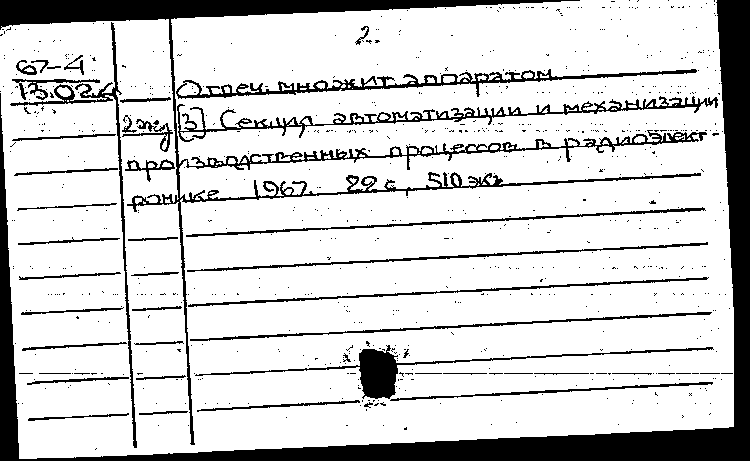 2.
67-4
13.024
Отпеч. множит. аппаратом
[3] Секция автоматизации и механизации
производственных процессов в радиоэлект-
ронике 1967. 22 с, 510 экз